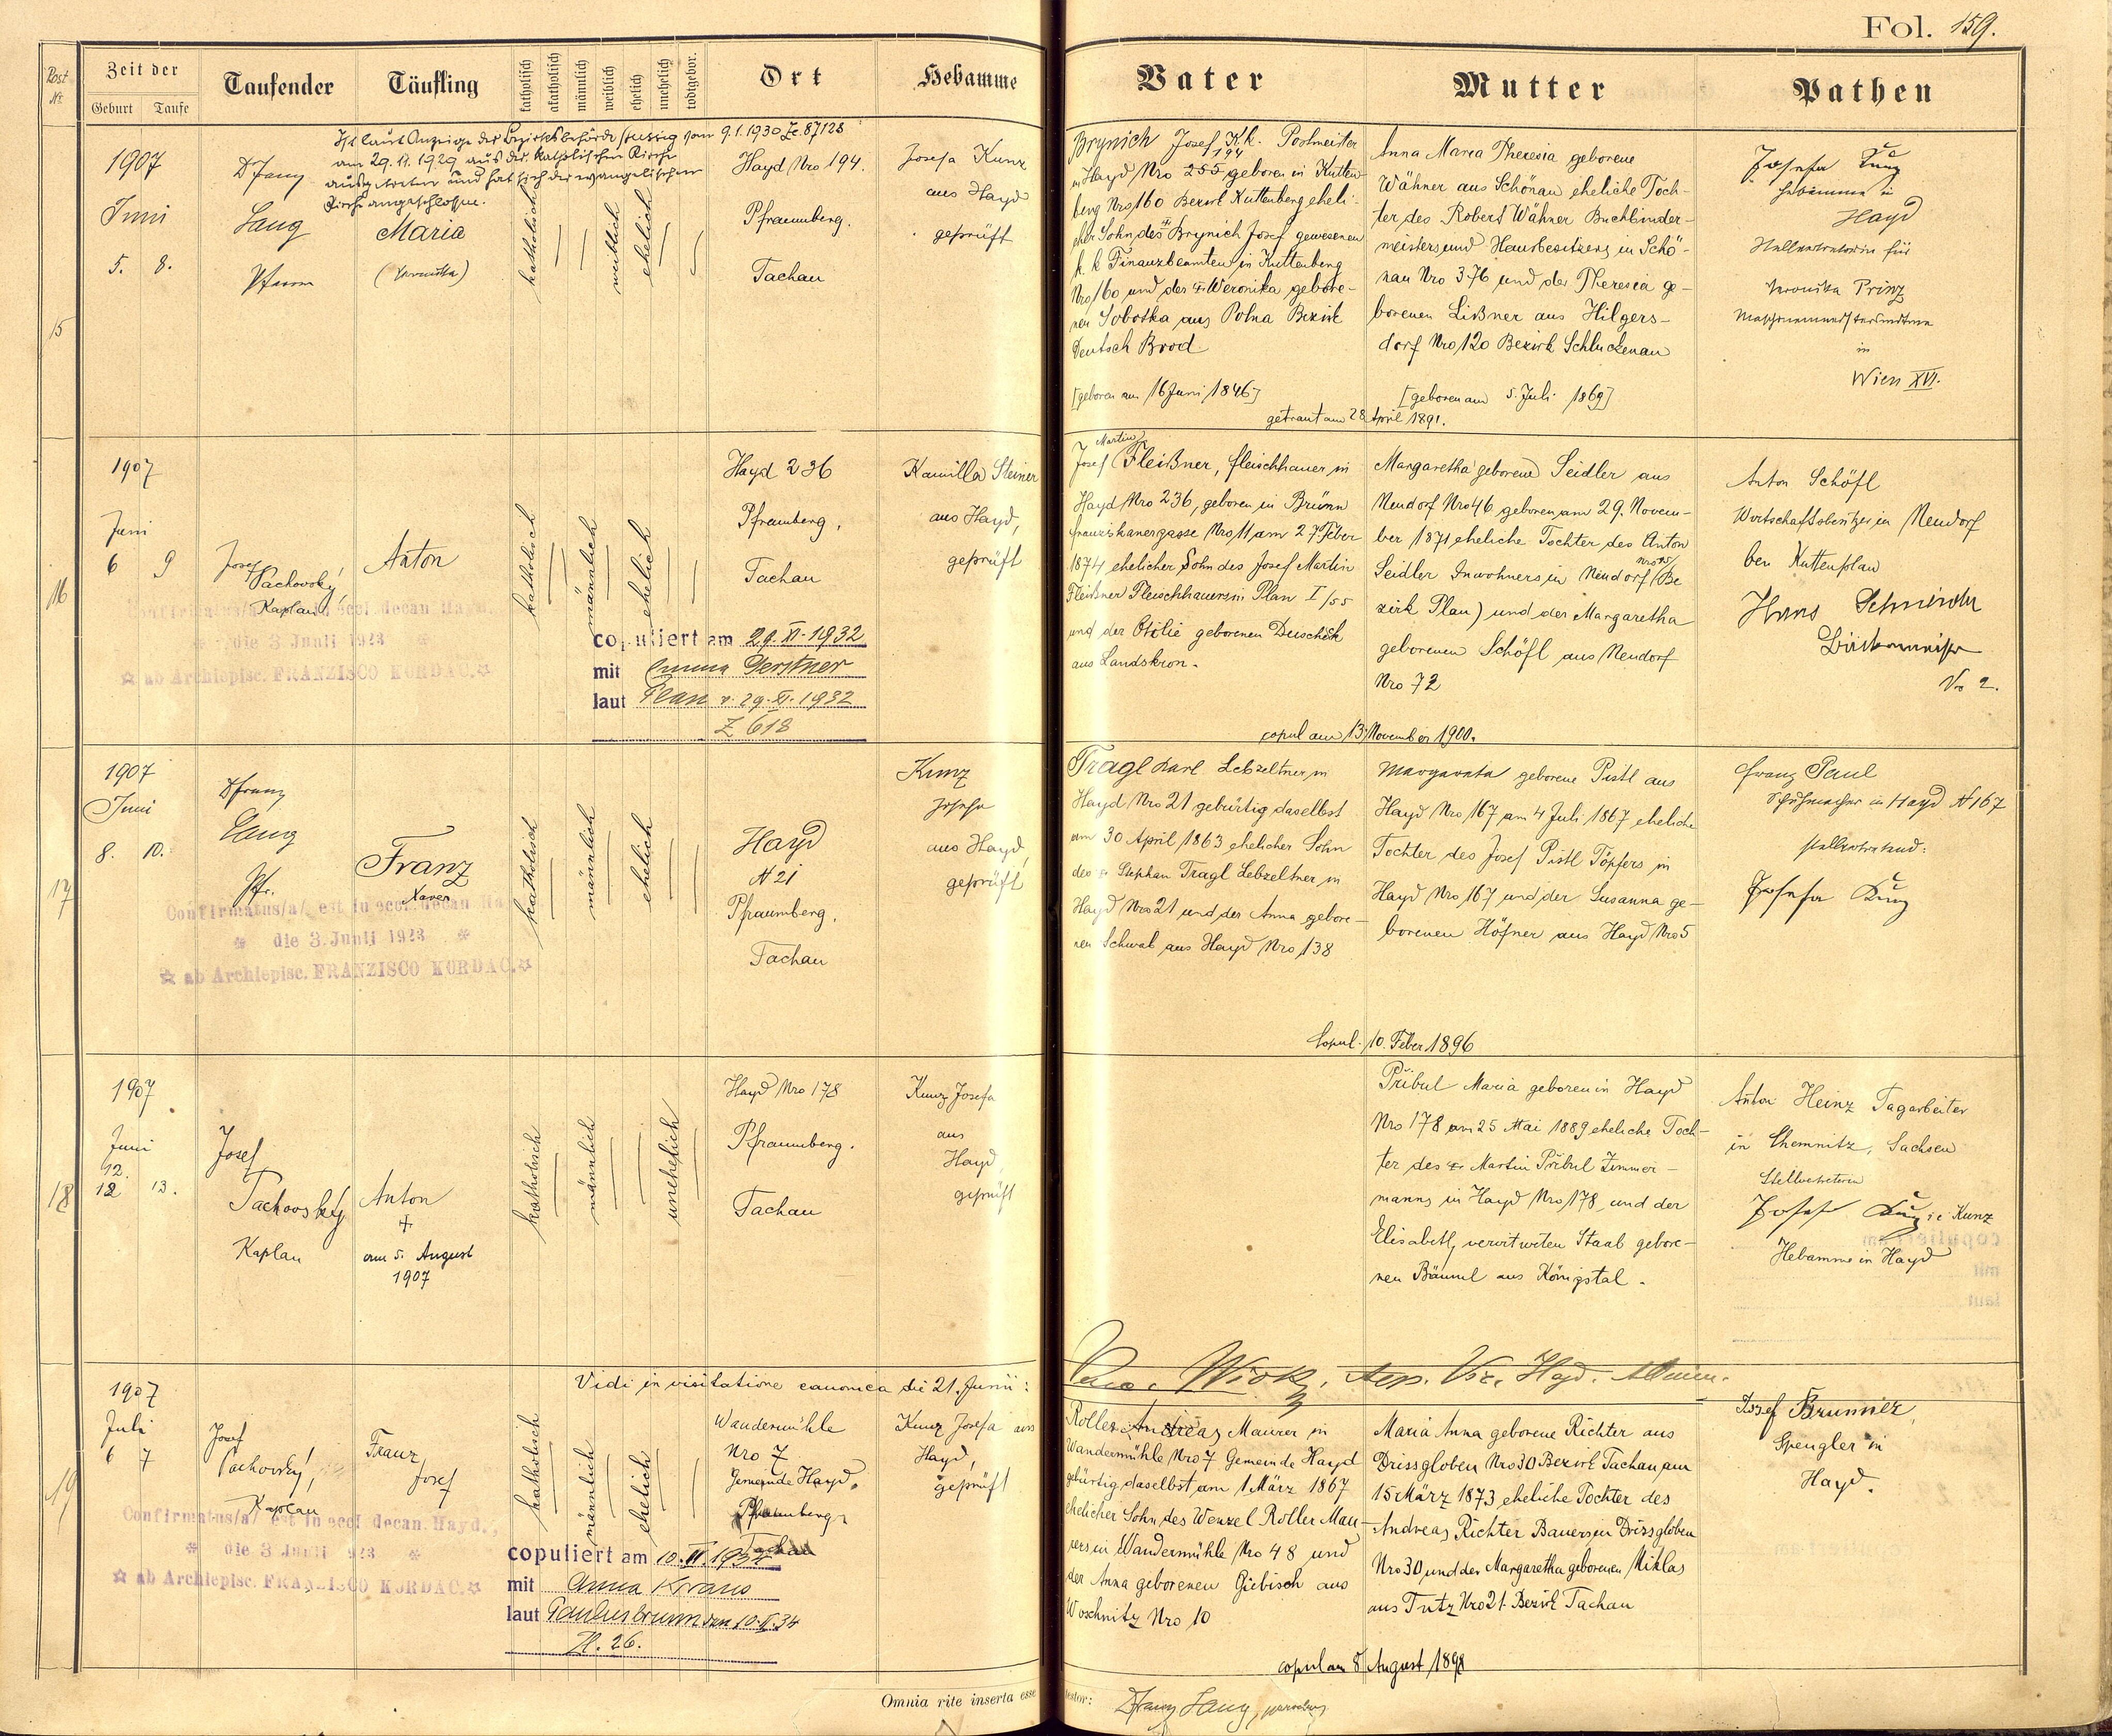 Fol. 159.
Post Nr.
Zeit der
Geburt
Taufe
Taufender
Täufling
katholisch
akatholisch
männlich
weiblich
ehelich
unehelich
todtgebor.
Ort
Hebamme
Vater
Mutter
Pathen
15
Ist laut Anzeige der Bezirksbehörde Aussig vom 9.1.1930 Zl. 87128
am 29.11.1929 aus der katholischen Kirche
ausgetreten und hat sich der evangelischen
Kirche angeschlossen.
1907
Juni
5. 8.
Franz
Lang
Pfarrer
Maria
(Veronika)
katholisch
weiblich
ehelich
Hayd Nro 194.
Pfraumberg.
Tachau
Josefa Kunz
aus Hayd
geprüft
Brynich Josef K.k. Postmeister
194
in Hayd Nro 255 geboren in Kutten-
berg Nro 160 Bezirk Kuttenberg eheli-
cher Sohn des Brynich Josef gewesenen
k. k Finanzbeamten in Kuttenberg
Nro 160 und der Weronika gebore-
nen Sobotka aus Polna Bezirk
Deutsch Brod
[geboren am 16 Juni 1846]
Anna Maria Theresia geborene
Wähner aus Schönau eheliche Toch-
ter des Robert Wähner Buchbinder-
meisters und Hausbesitzers in Schö-
nau Nro 376 und der Theresia ge-
borenen Lißner aus Hilgers-
dorf Nro 120 Bezirk Schluckenau
[geboren am 5. Juli 1869]
getraut am 28 April 1891.
Josefa Kunz
Hebamme in
Hayd
Stellvertreterin für
Veronika Prinz
in
Wien XVI.
16
1907
Juni
6 9
Josef
Tachovský,
Kaplan
Anton
Confirmatus/a/ est in eccl decan Hayd.
die 3 Junii 1923
ab Archiepisc. FRANZISCO KORDAC.
katholisch
männlich
ehelich
copuliert am 29. XI. 1932
mit Emma Gerstner
laut Plan v. 29. XI. 1932
Z 618
Hayd 236
Pfraumberg,
Tachau
Kamilla Steiner
aus Hayd,
geprüft
Martin
Josef Fleißner, Fleischhauer in
Hayd Nro 236, geboren in Brünn
Franziskanergasse Nro 11 am 27. Feber
1874 ehelicher Sohn des Josef Martin
Fleißner Fleischhauers in Plan I/55
und der Otilie geborenen
aus Landskron.
Margaretha geborene Seidler aus
Neudorf Nro 46 geboren am 29. Novem-
ber 1871 eheliche Tochter des Anton
Seidler Inwohners in Neudorf (Be-
zirk Plan) und der Margaretha
geborenen Schöfl aus Neudorf
Nro 72
copul am 13 November 1900.
Anton Schöfl
Wirtschaftsbesitzer in Neudorf
bei Kuttenplan
Hans Schneider
No 2.
17
1907
Juni
8. 10.
Franz
Lang
Pfr.
Franz
Xaver
Confirmatus/a/ est in eccl decan Ha
die 3. Junii 1923
ab Archiepisc. FRANZISCO KORDAC.
katholisch
männlich
ehelich
Hayd
N 21
Pfraumberg.
Tachau
Kunz
Josefa
aus Hayd,
geprüft
Tragl Karl Lebzeltner in
Hayd Nro 21 gebürtig daselbst
am 30 April 1863 ehelicher Sohn
des Stephan Tragl Lebzeltner in
Hayd Nro 21 und der Anna gebore-
nen Schwab aus Hayd Nro 138
Margareta geborene Pistl aus
Hayd Nro 167 am 4 Juli 1867 eheliche
Tochter des Josef Pistl Töpfers in
Hayd Nro 167 und der Susanna ge-
borenen Höfner aus Hayd Nro 5
Copul. 10. Feber 1896
Franz Paul
Schuhmacher in Hayd N 167
stellvertretend:
Josefa Kunz
18
1907
Juni
12.
12 13.
Josef
Tachovský
Kaplan
Anton
+
am 5. August
1907
katholisch
männlich
unehelich
Hayd Nro 178
Pfraumberg.
Tachau
Kunz Josefa
aus
Hayd,
geprüft
Přibul Maria geboren in Hayd
Nro 178 am 25 Mai 1889 eheliche Toch-
ter des Martin Přibul Zimmer-
manns in Hayd Nro 178 und der
Elisabeth verwitweten Staab gebore-
nen Bäuml aus Königstal.
Anton Heinz Tagarbeiter
in Chemnitz, Sachsen
Stellvertreterin
Josefa Kunz i.e. Kunz
Hebamme in Hayd
19
Vidi in visitatione canonica die 21. Junii:
1907
Juli
6 7
Josef
Tachovský,
Kaplan
Franz
Josef
Confirmatus/a/ est in eccl decan. Hayd.,
die 3 Junii 923
ab Archiepisc. FRANZISCO KORDAC.
katholisch
männlich
ehelich
copuliert am 10. II. 1934
mit Anna Kraus
laut Paulusbrunn vom 10. II. 34
Zl. 26.
Wandermühle
Nro 7
Gemeinde Hayd.
Pfraumberg
Tachau
Kunz Josefa aus
Hayd,
geprüft
Roller Andreas Maurer in
Wandermühle Nro 7 Gemeinde Hayd
gebürtig daselbst am 1 März 1867
ehelicher Sohn des Wenzel Roller Mau-
rers in Wandermühle Nro 48 und
der Anna geborenen Giebisch aus
Woschnitz Nro 10
Maria Anna geborene Richter aus
Drissgloben Nro 30 Bezirk Tachau am
15 März 1873 eheliche Tochter des
Andreas Richter Bauers in Drissgloben
Nro 30 und der Margaretha geborenen Miklas
aus Tutz Nro 21 Bezirk Tachau
copul am 8 August 1898
Josef Brunner,
Spengler in
Hayd.
Omnia rite inserta esse testor:
Franz Lang, parochus